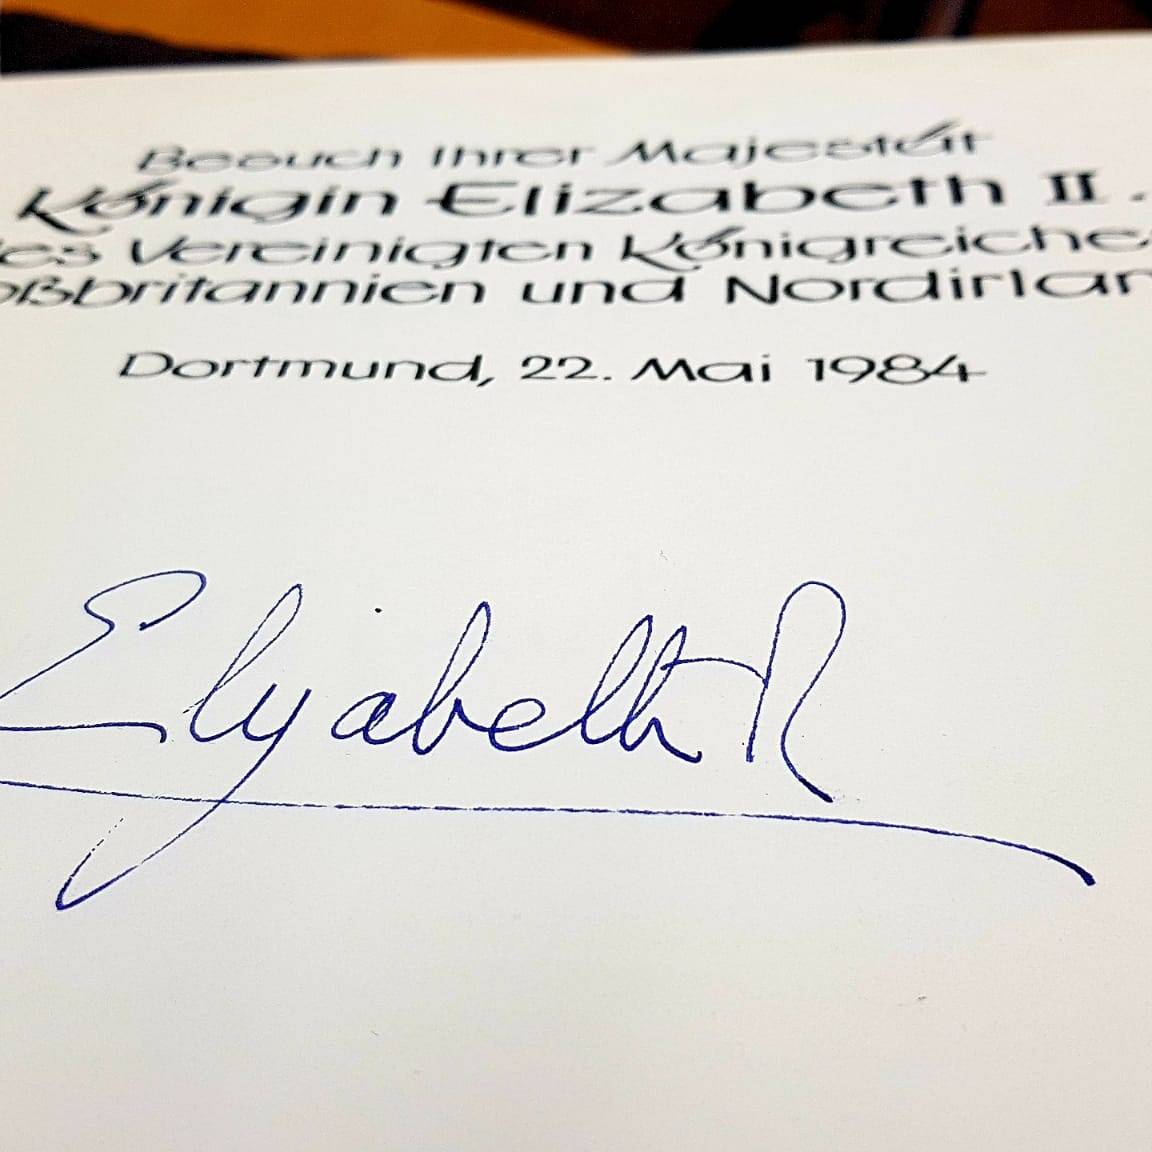 Besuch Ihrer Majestät
Königin Elizabeth II.
es Vereinigten Königreiche
oßbritannien und Nordirlan
Dortmund, 22. Mai 1984
Elizabeth R